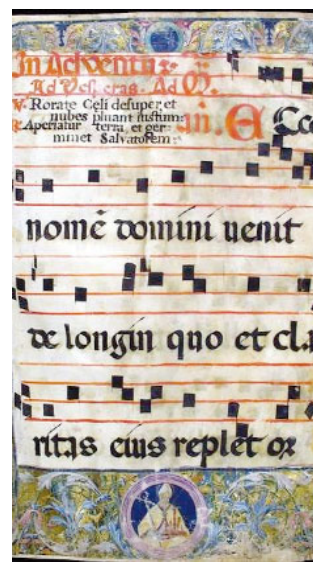 In Adventu
Ad Vesp̃. eras. Ad M̃.
V. Rorate Celi desuper, et
nubes pluant iustum:
R. Aperiatur terra, et ger-
minet Salvatorem:
an̄. E Cce
nomẽ domini uenit
de longin quo et cla
ritas eius replet or